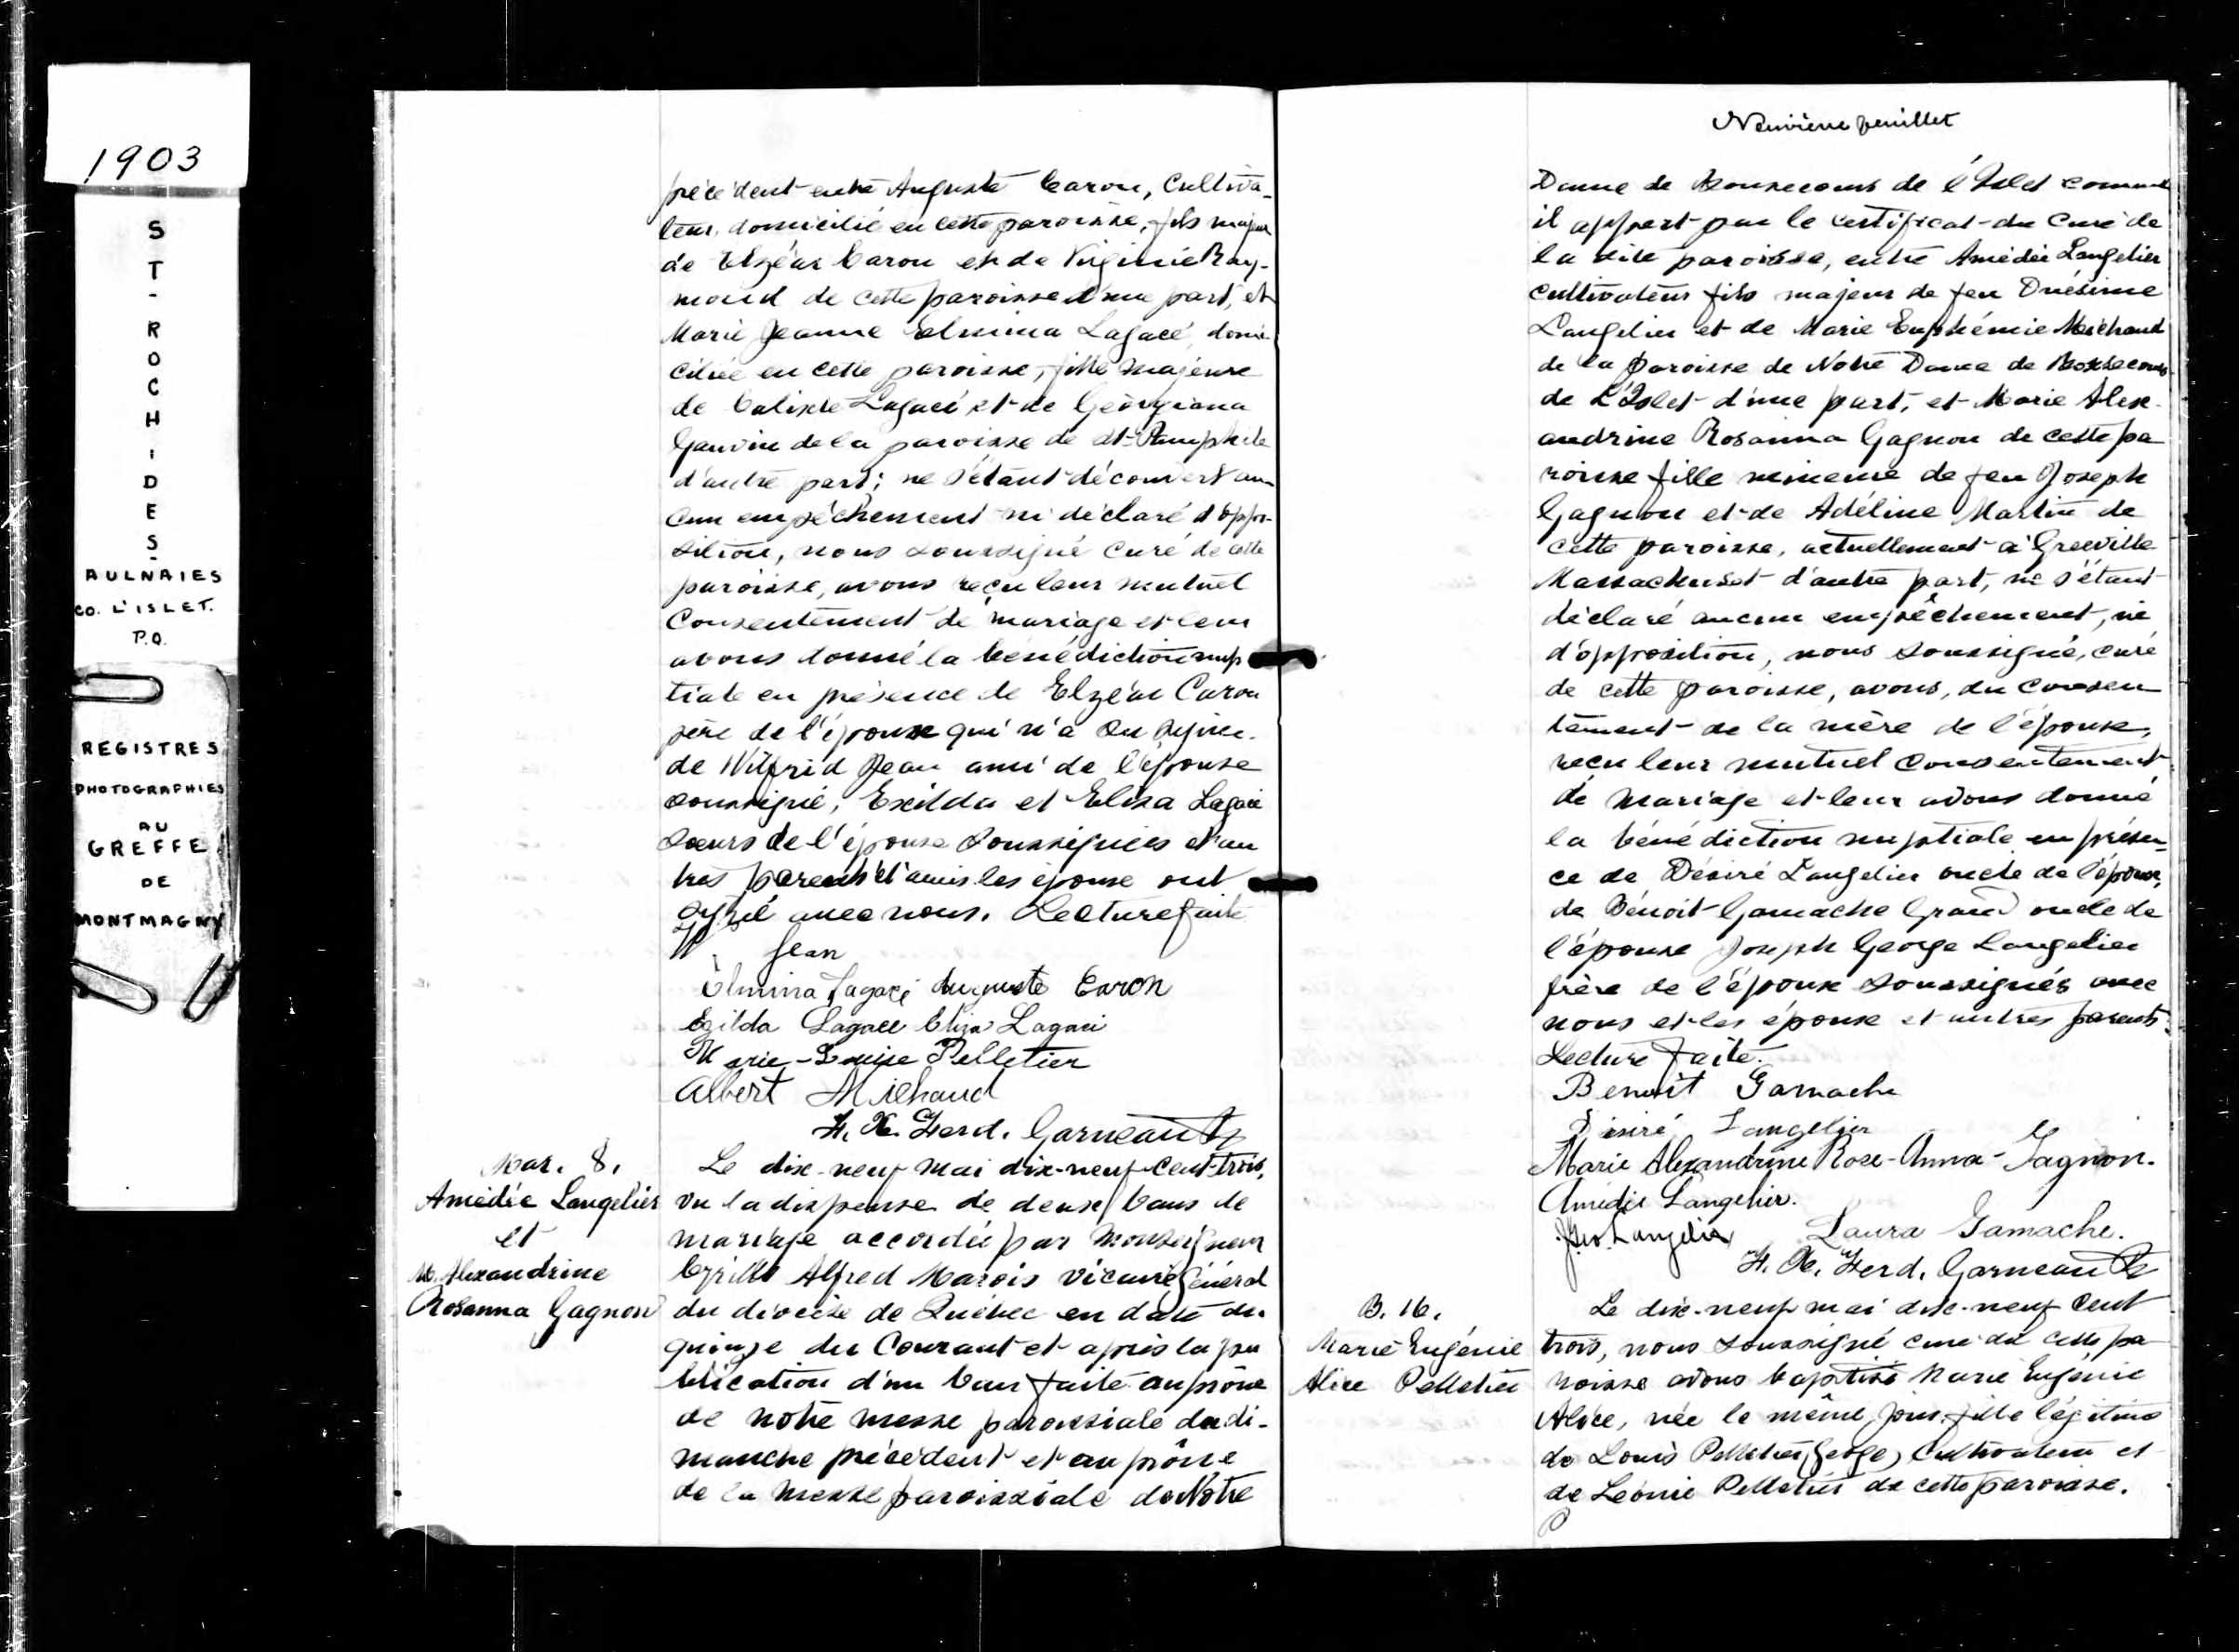 1903
ST-ROCH-DES-
AULNAIES
CO. L'ISLET.
P.Q.
REGISTRES
PHOTOGRAPHIES
AU
GREFFE
DE
MONTMAGNY
précédent entre Auguste Caron, Cultiva-
teur, domicilié en cette paroisse, fils majeur
de Elzéar Caron et de Virginie Ray-
mond de cette paroisse d'une part, et
Marie Jeanne Elmina Lagacé, domi-
ciliée en cette paroisse, fille majeure
de Calixte Lagacé et de Georgiana
Gauvin de la paroisse de St-Pamphile
d'autre part; ne s'étant découvert au-
cun empêchement ni déclaré d'oppo-
sition, nous soussigné curé de cette
paroisse, avons reçu leur mutuel
Consentement de mariage et leur
avons donné la bénédiction nup
tiale en présence de Elzéar Caron
père de l'époux qui n'a su signer.
de Wilfrid Jean ami de l'épouse
soussigné, Exilda et Eliza Lagacé
soeurs de l'épouse soussignées et au
tres parents et amis les époux ont
signé avec nous. Lecture faite
W. Jean
Elmina Lagacé Auguste Caron
Egilda Lagacé Eliza Lagacé
Marie-Louise Pelletier
Albert Michaud
F. X. Ferd. Garneau
Mar. 8.
Amédée Langelier
et
M. Alexandrine
Rosanna Gagnon
Le dix-neuf mai dix-neuf-cent-trois,
vu la dispense de deux bans de
mariage accordée par Monseigneur
Cyrille Alfred Marois vicaire Général
du diocèse de Québec en date du
quinze du Courant et après la pu
blication d'un ban faite au prône
de notre messe paroissiale du di-
manche précédent et au prône
de la messe paroissiale de Notre
Neuvième feuillet
Dame de Bonsecours de l'Islet comme
il appert par le certificat du Curé de
la dite paroisse, entre Amédée Langelier
cultivateur fils majeur de feu Onésime
Langelier et de Marie Euphémie Michaud
de la paroisse de Notre Dame de Bonsecours
de L'Islet d'une part, et Marie Alex-
andrine Rosanna Gagnon de cette pa
roisse fille mineure de feu Joseph
Gagnon et de Adéline Martin de
cette paroisse, actuellement à Greeville
Massachuset d'autre part, ne s'étant
déclaré aucun empêchement, ni
d'opposition, nous soussigné, curé
de cette paroisse, avons, du consen
tement de la mère de l'épouse,
reçu leur mutuel consentement
de mariage et leur avons donné
la bénédiction nuptiale en présen-
ce de Désiré Langelier oncle de l'époux,
de Bénoit Gamache Grand oncle de
l'épouse Joseph George Langelier
frère de l'époux soussignés avec
nous et les époux et autres parents.
Lecture faite.
Benoit Gamache
Désiré Langelier
Marie Alexandrine Rose-Anna-Gagnon.
Amédée Langelier.
J Geo. Langelier Laura Gamache.
F. X. Ferd. Garneau
B. 16.
Marie Eugénie
Alice Pelletier
Le dix-neuf mai dix-neuf cent
trois, nous soussigné curé de cette pa
roisse avons baptisé Marie Eugénie
Alice, née le même jour, fille légitime
de Louis Pelletier (George) Cultivateur et
de Léonie Pelletier de cette paroisse.